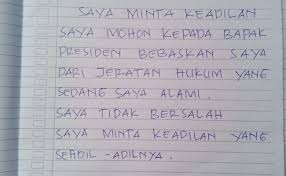 SAYA MINTA KEADILAN
SAYA MOHON KEPADA BAPAK
PRESIDEN BEBASKAN SAYA
DARI JERATAN HUKUM YANG
SEDANG SAYA ALAMI.
SAYA TIDAK BERSALAH
SAYA MINTA KEADILAN YANG
SEADIL-ADILNYA.